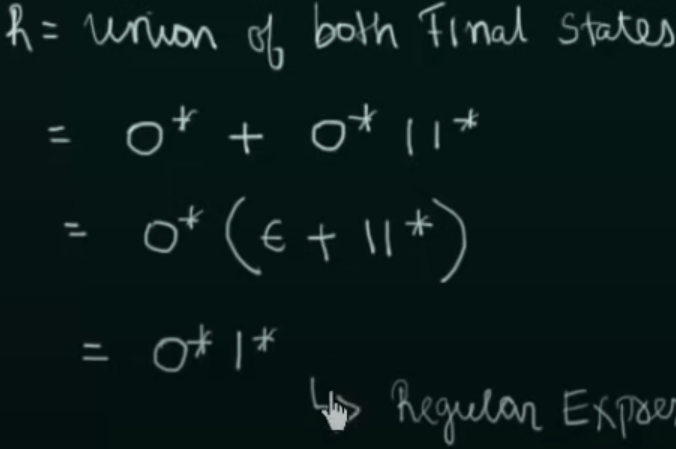 R = union of both Final States
= 0* + 0* 11*
= 0* (ϵ + 11*)
= 0* 1*
↳ Regular Expres